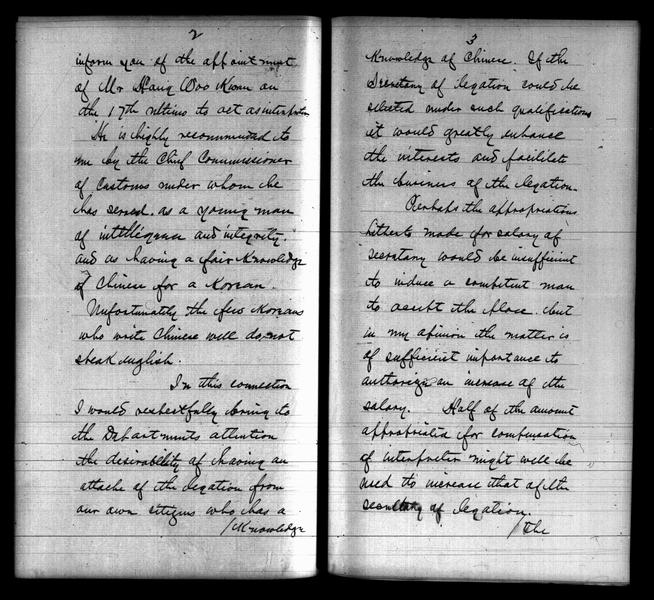 2
inform you of the appointment
of Mr Hang Woo Kwan on
the 17th ultimo to act as interpreter
He is highly recommended to
me by the Chief Commissioner
of Customs under whom he
has served. as a young man
of intelligence and integrity.
and as having a fair knowledge
of Chinese for a Korean.
Unfortunately the few Koreans
who write Chinese well do not
speak english.
In this connection
I would respectfully bring to
the Departments attention
the desirability of having an
attache of the legation from
our own citizens who has a
/Knowledge
3
Knowledge of Chinese. If the
Secretary of legation could be
selected under such qualifications
it would greatly enhance
the interests and facilitate
the business of the legation.
Perhaps the appropriations
hitherto made for salary of
secretary would be insufficient
to induce a competent man
to accept the place. but
in my opinion the matter is
of sufficient importance to
authorize an increase of the
salary. Half of the amount
appropriated for compensation
of interpreter might well be
used to increase that of the
secretary of legation.
/The